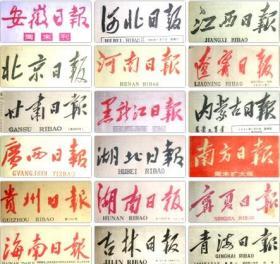 安徽日報
周末刊
河北日報
HEBEI RIBAO
江西日報
JIANGXI RIBAO
北京日報
河南日報
HENAN RIBAO
遼寧日報
LIAONING RIBAO
甘肃日報
GANSU RIBAO
黑龙江日報
内蒙古日報
廣西日報
GVANGJSIH YIZBAO
湖北日報
HUBEI RIBAO
南方日報
周末扩大版
貴州日報
GUIZHOU RIBAO
湖南日報
HUNAN RIBAO
寧夏日報
NINGXIA RIBAO
海南日報
HAINAN RIBAO
吉林日報
JILIN RIBAO
青海日報
QINGHAI RIBAO